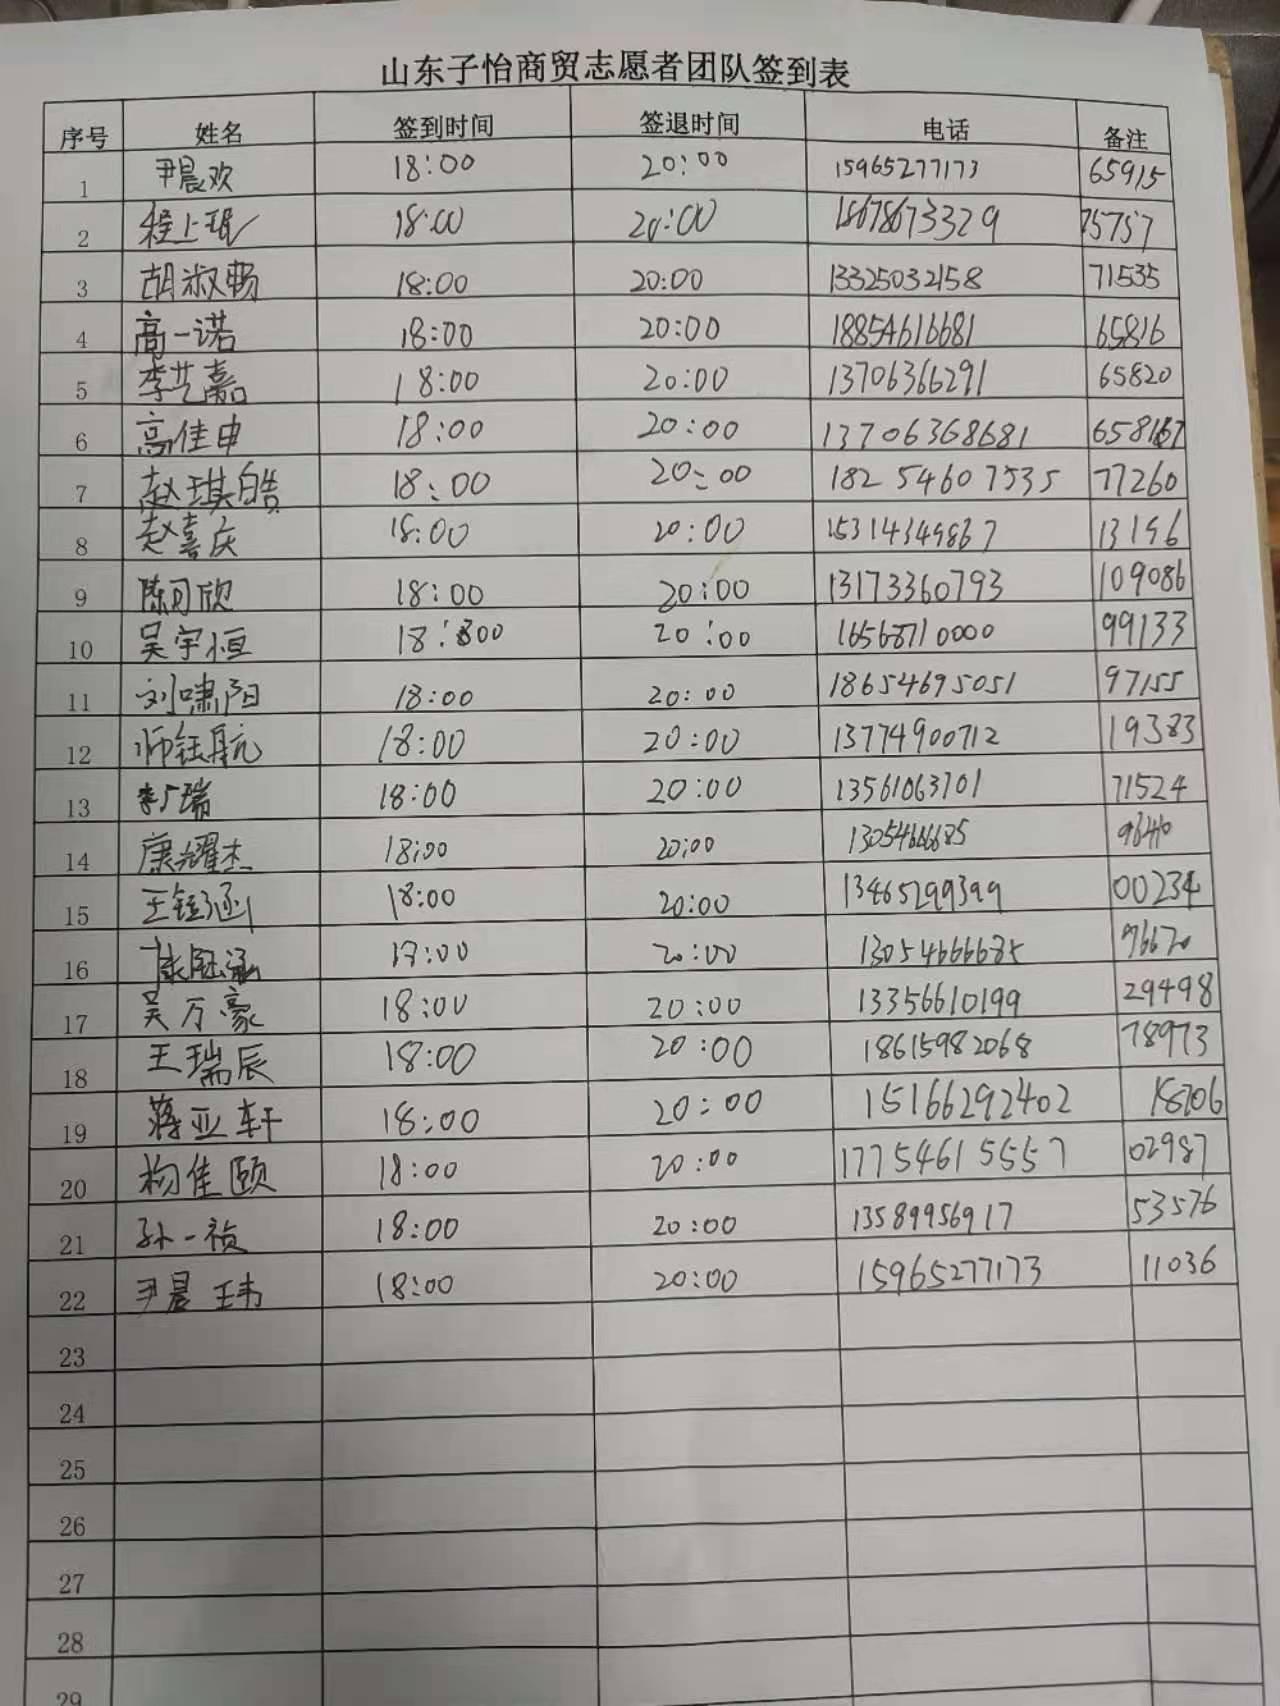 山东子怡商贸志愿者团队签到表
序号 姓名 签到时间 签退时间 电话 备注
1 尹晨欢 18:00 20:00 15965277173 65915
2 程上珉 18:00 20:00 18678673329 75757
3 胡淑畅 18:00 20:00 13325032158 71535
4 高一诺 18:00 20:00 18854616681 65816
5 李艺嘉 18:00 20:00 13706366291 65820
6 高佳申 18:00 20:00 13706368681
7 赵琪皓 18:00 20:00 18254607535 77260
8 赵嘉庆 18:00 20:00 15314349867 13196
9 陈可欣 18:00 20:00 13173360793 109086
10 吴宇恒 20:00 16568710000 99133
11 刘啸阳 18:00 20:00 18654695051 97155
12 师钰航 18:00 20:00 13774900712 19383
13 李广瑞 18:00 20:00 13561063701 71524
14 康耀杰 18:00 20:00 13054666685
15 王钰涵 18:00 20:00 13465299399 00234
16 20:00 13054666685 96670
17 吴万豪 18:00 20:00 13356610199 29498
18 王瑞辰 18:00 20:00 18615982068 78973
19 蒋亚轩 18:00 20:00 15166292402
20 杨佳颐 18:00 20:00 17754615557 02987
21 孙一祯 18:00 20:00 13589956917 53576
22 尹晨玮 18:00 20:00 15965277173 11036
23
24
25
26
27
28
29